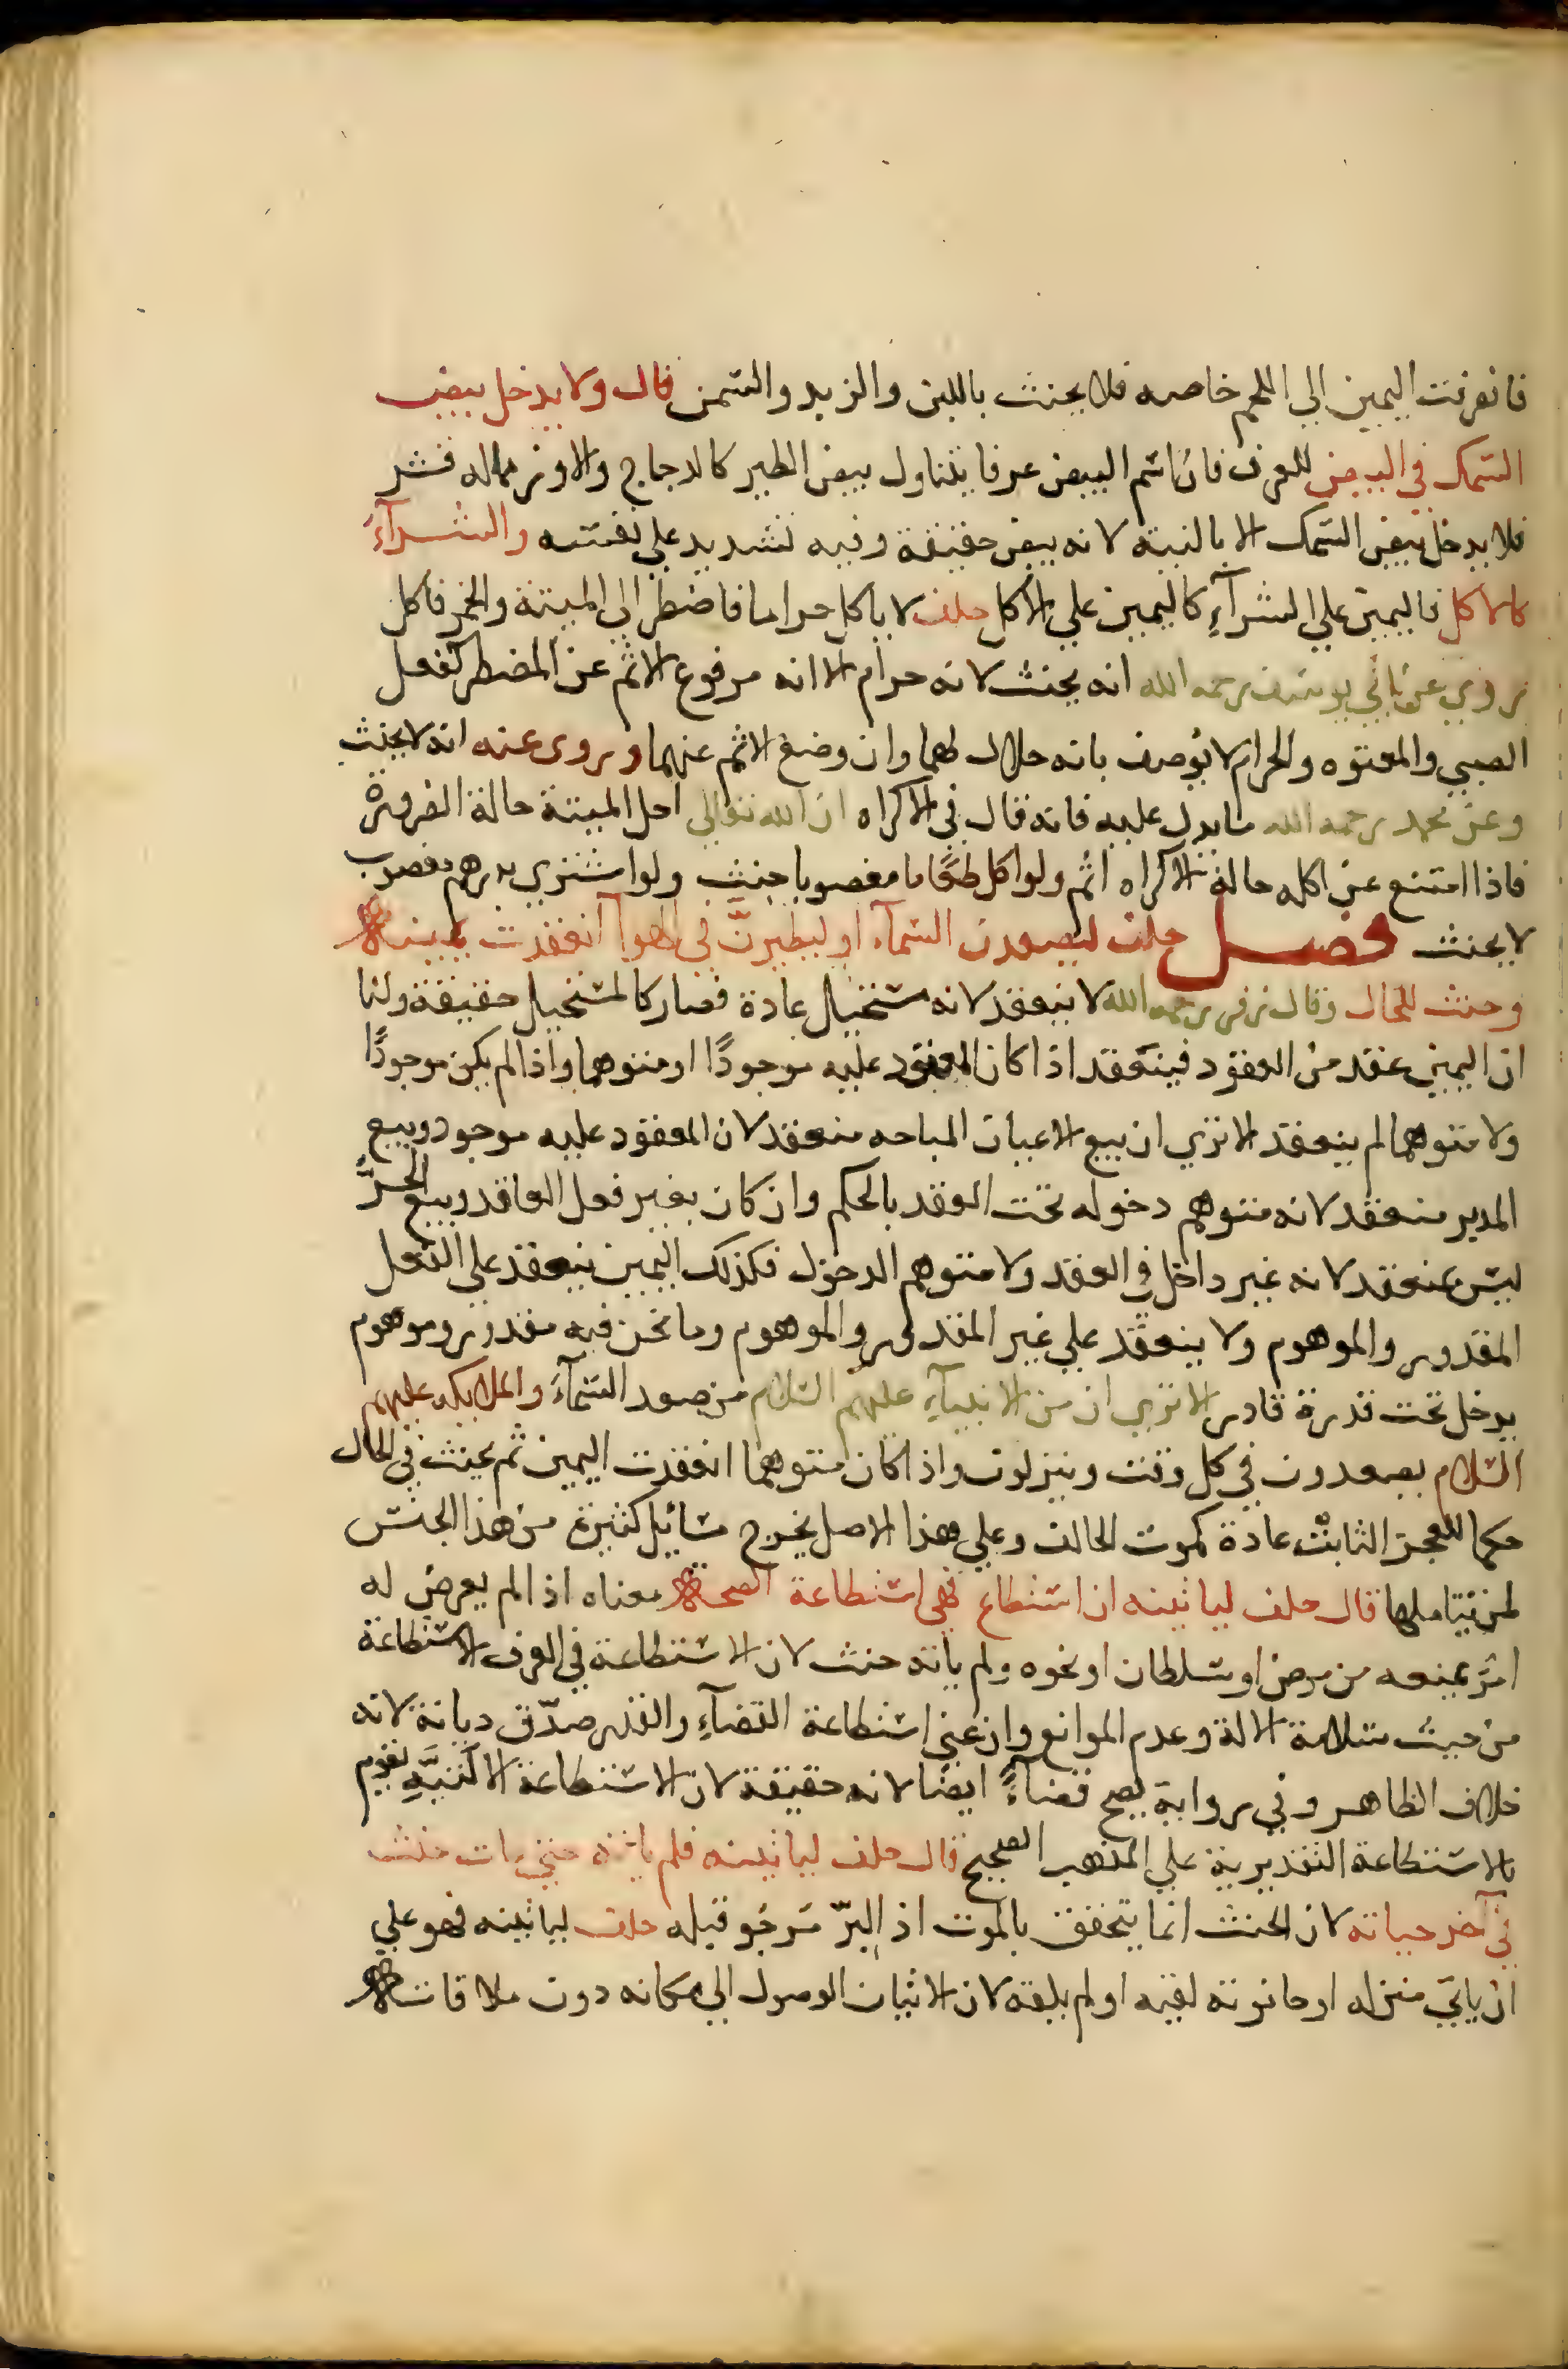 فانصرفت اليمين الي اللحم خاصه فلا يحنث باللبن والزبد والسمن قال ولا يدخل بيض
السمك في البيض للعرف فان اسم البيض عرفا يتناول بيض الطير كالدجاج والاوز مما له قشر
فلا يدخل بيض السمك الا بالنية لانه بيض حقيقة وفيه تشديد علي نفسه والشرآء
كالاكل فاليمين علي الشرآء كاليمين علي الاكل حلف لا ياكل حراما فاضطر الي الميتة والخمر فاكل
روي عن ابي يوسف رحمه الله انه يحنث لانه حرام الا انه مرفوع الاثم عن المضطر كفعل
الصبي والمعتوه والحرام لا يوصف بانه حلال لهما وان وضع الاثم عنهما وروى عنه انه لا يحنث
وعن محمد رحمه الله ما يدل عليه فانه قال في الاكراه ان الله تعالي احل الميتة حالة الضرورة
فاذا امتنع عن اكله حالة الاكراه اثم ولو اكل طعاما مغصوبا حنث ولو اشتري بدرهم مغصوب
لا يحنث فصل حلف ليصعدن السمآء او ليطيرنّ في الهوآ انعقدت يمينه
وحنث للحال وقال زفر رحمه الله لا ينعقد لانه مستحيل عادة فصار كالمستحيل حقيقة ولنا
ان اليمين عقد من العقود فينعقد اذا كان المعقود عليه موجودًا او متوهما واذا لم يكن موجودًا
ولا متوهما لم ينعقد الا تري ان بيع الاعيان المباحه منعقد لان المعقود عليه موجود وبيع
المدبر منعقد لانه متوهم دخوله تحت العقد بالحكم وان كان بغير فعل العاقد وبيع الحرّ
ليس بمنعقد لانه غير داخل في العقد ولا متوهم الدخول فكذلك اليمين ينعقد علي الفعل
المقدور والموهوم ولا ينعقد علي غير المقدور والموهوم وما نحن فيه مقدور وموهوم
يدخل تحت قدرة قادر الا تري ان من الانبيآء عليهم السلام من صعد السمآء والملايكه عليهم
السلام يصعدون في كل وقت وينزلون واذا كان متوهما انعقدت اليمين ثم يحنث في الحال
حكما للعجز الثابت عادة كموت الحالف وعلي هذا الاصل يخرج مسائيل كثيرة من هذا الجنس
لمن يتاملها قال حلف لياتينه ان استطاع فهي استطاعة الصحة معناه اذا لم يعرض له
امر يمنعه من مرض او سلطان او نحوه ولم ياته حنث لان الاستطاعة في العرف الاستطاعة
من حيث سلامة الالة وعدم الموانع وان عني استطاعة القضآء والقدر صدّق ديانة لانه
خلاف الظاهر وفي رواية يصح قضآءً ايضا لانه حقيقة لان الاستطاعة الاكثريّة تقوم
بالاستطاعة التقديرية علي المذهب الصحيح قال حلف لياتينه فلم ياته حتي مات حنث
في آخر حياته لان الحنث انما يتحقق بالموت اذ البرّ مرجو قبله حلف لياتينه فهو علي
ان ياتي منزله او حانوته لقيه او لم يلقه لان الاتيان الوصول الي مكانه دون ملاقاته